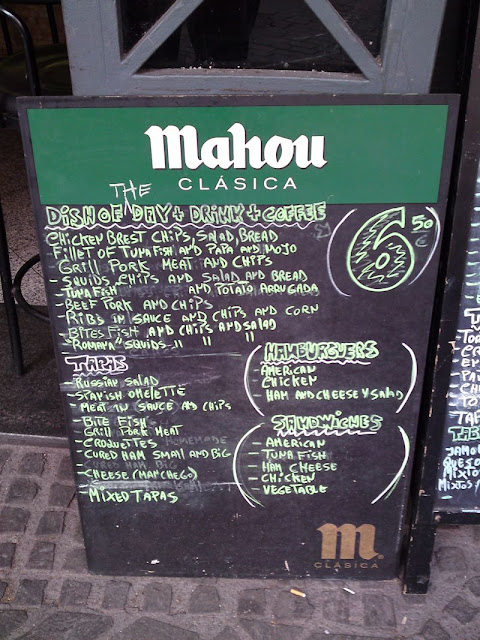 Mahou
CLÁSICA
THE
DISH OF DAY + DRINK + COFFEE
6 50 €
CHICKEN BREST CHIPS, SALAD, BREAD
FILLET OF TUNA FISH AND PAPA AND MOJO
GRILL PORK MEAT AND CHIPS
- SQUIDS, CHIPS AND SALAD AND BREAD
- TUNA FISH AND POTATO ARRUGADA
- BEEF PORK AND CHIPS
- RIBS IN SAUCE AND CHIPS AND CORN
- BITES FISH AND CHIPS AND SALAD
- "ROMANA" SQUIDS " " "
TAPAS
- RUSSIAN SALAD
- SPANISH OMELETTE
- MEAT IN SAUCE AND CHIPS
- BITE FISH
- GRILL PORK MEAT
- CROQUETTES HOMEMADE
- CURED HAM SMALL AND BIG
- CHEESE (MANCHEGO)
- MIXED TAPAS
HAMBURGUERS
- AMERICAN
- CHICKEN
- HAM AND CHEESE Y SALAD
SANDWICHES
- AMERICAN
- TUNA FISH
- HAM CHEESE
- CHICKEN
- VEGETABLE
m
CLÁSICA